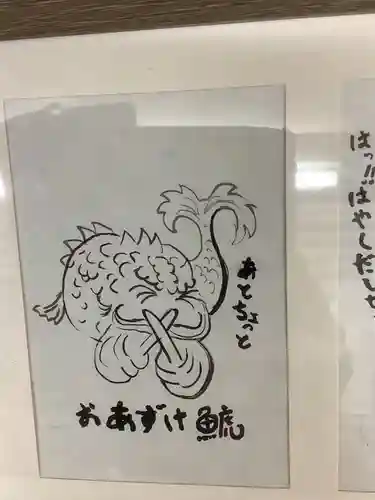 あとちょっと
おあずけ鯱
はっ!!はやしだしせ